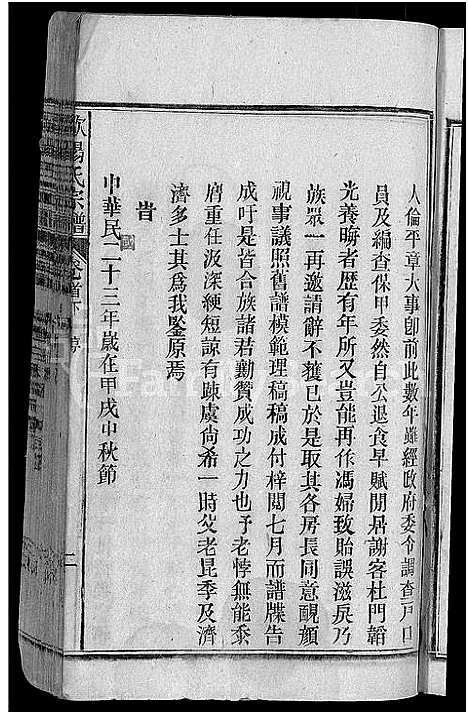 人倫平章大事卽前此數年雖經政府委令調查戶口
員及編查保甲委然自公退食早賦閒居謝客杜門韜
光養晦者歷有年所又豈能再作馮婦致貽誤滋戾乃
族眾一再邀請辭不獲已於是取其各房長同意靦顏
視事議照舊譜模範理稿稿成付梓閱七月而譜牒告
成吁是皆合族諸君勷贊成功之力也予老悖無能忝
膺重任汲深綆短諒有疎虞尙希一時父老昆季及濟
濟多士其爲我鑒原焉
旹
中華民國二十三年歲在甲戌中秋節
歐陽氏宗譜 卷首下 序 二